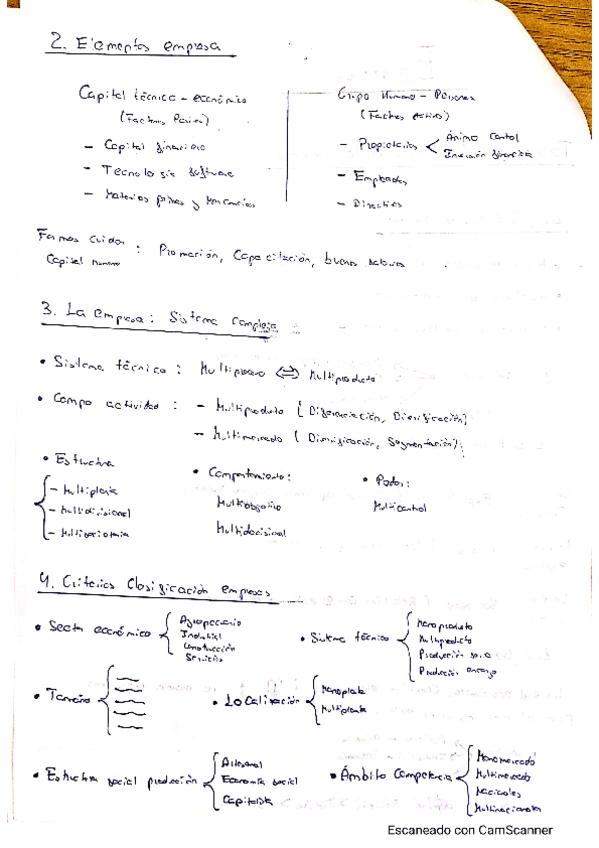 2. Elementos empresa
Capital técnico - económico
(Factores Pasivos)
- Capital financiero
- Tecnología software
- Materias primas y Mercancías
Grupo Humano - Personas
(Factores Activos)
- Propietarios < Ánimo Control
Inversión financiera
- Empleados
- Directivos
Formas cuidar
Capital humano : Promoción, Capacitación, buenos
3. La empresa: Sistema complejo
• Sistema técnico : Multiproceso ⇔ Multiproducto
• Campo actividad : - Multiproducto (Diferenciación, Diversificación)
- Multimercado (Diversificación, Segmentación)
• Estructura
- Multiplanta
- Multidivisional
- Multisocietaria
• Comportamiento:
Multiobjetivo
Multidecisional
• Poder:
Multicontrol
4. Criterios Clasificación empresas
• Sector económico { Agropecuario
Industrial
Construcción
Servicios
• Sistema técnico { Monoproducto
Multiproducto
Producción serie
Producción encargo
• Tamaño {
• Localización { Monoplanta
Multiplanta
• Estructura social producción { Artesanal
Economía social
Capitalista
• Ámbito Competencia { Monomercado
Multimercado
Nacionales
Multinacionales
Escaneado con CamScanner